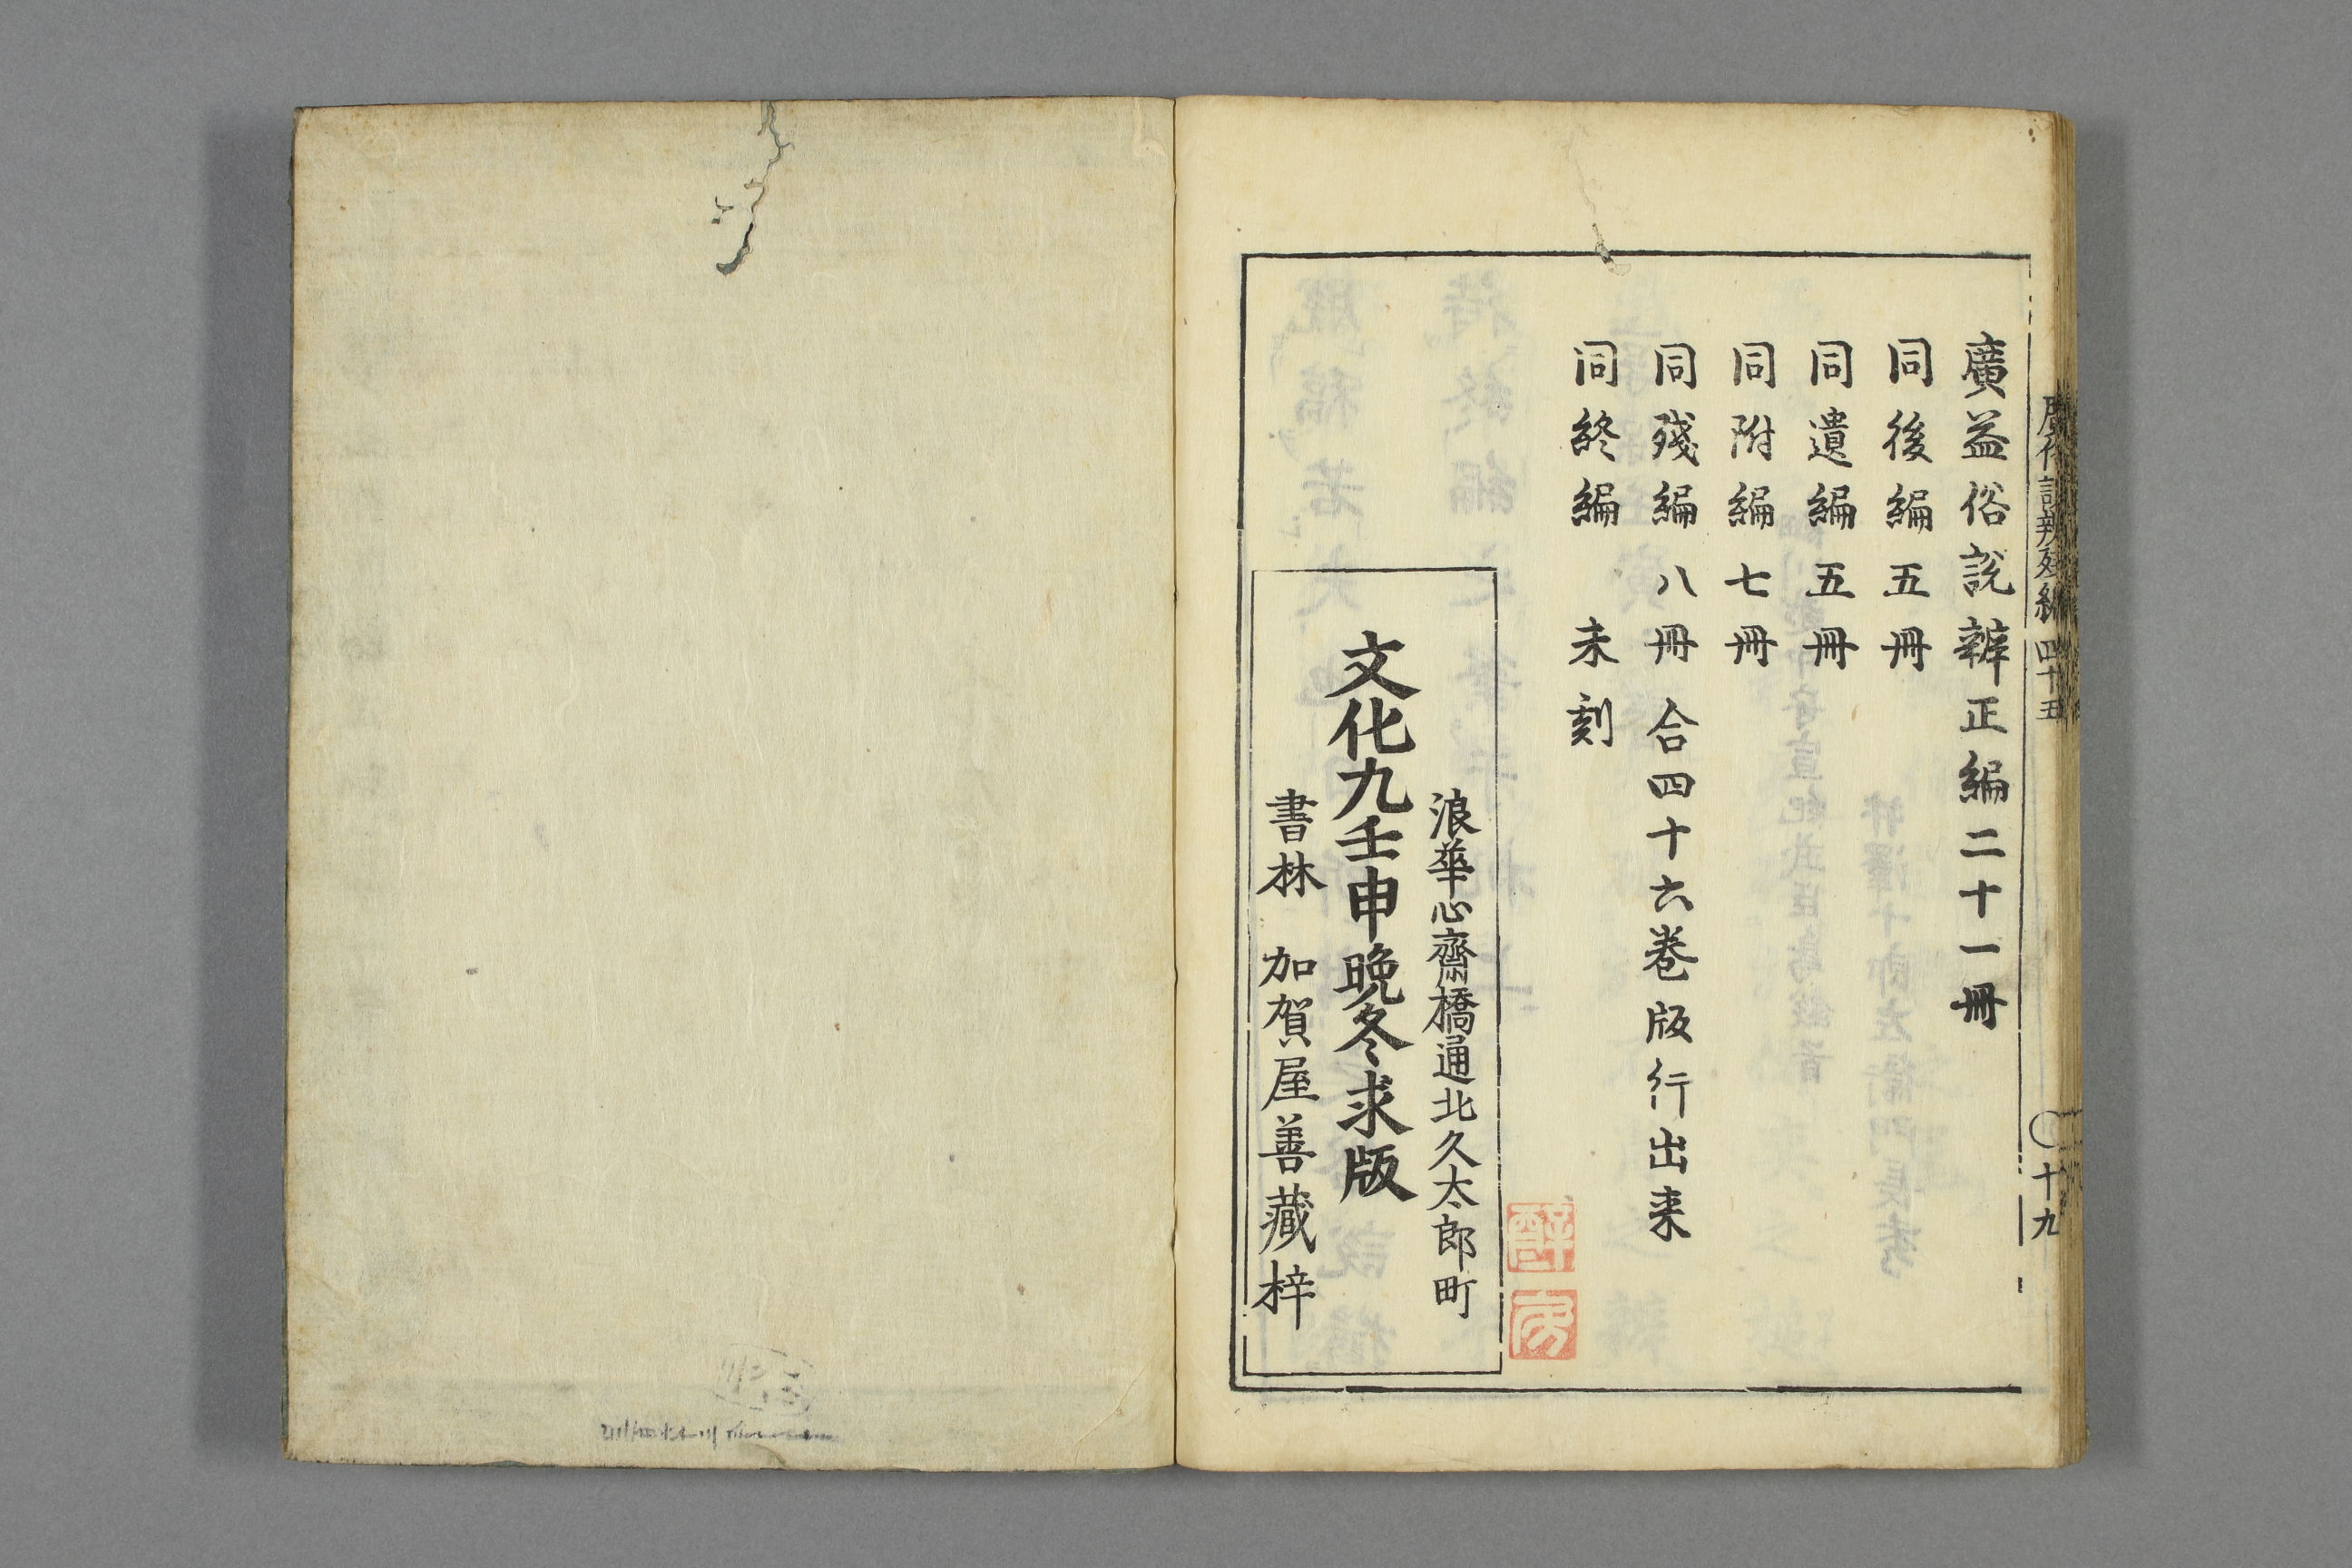 廣益俗說辨正編二十一冊
同後編五冊
同遺編五冊
同附編七冊
同殘編八冊 合四十六卷版行出来
同終編 未刻
浪華心齋橋通北久太郎町
文化九壬申晩冬求版
書林 加賀屋善藏梓
四十五
十九